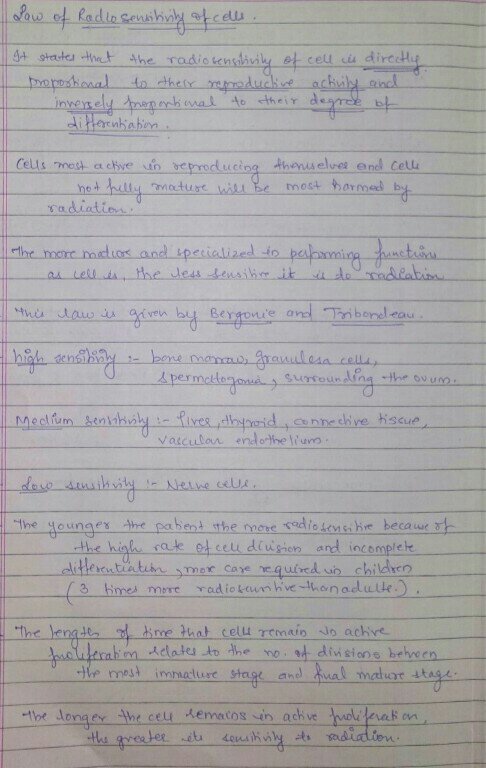 Law of Radiosensitivity of cells.
It states that the radiosensitivity of cell is directly
proportional to their reproductive activity and
inversely proportional to their degree of
differentiation.
Cells most active in reproducing themselves and cells
not fully mature will be most harmed by
radiation.
The more mature and specialized in performing functions
as cell is, the less sensitive it is to radiation
This law is given by Bergonie and Tribondeau.
high sensitivity :- bone marrow, granulosa cells,
spermatogonia, surrounding the ovum.
Medium sensitivity :- liver, thyroid, connective tissue,
vascular endothelium.
Low sensitivity :- Nerve cells.
The younger the patient the more radiosensitive because of
the high rate of cell division and incomplete
differentiation, more care required in children
(3 times more radiosensitive than adults.).
The length of time that cells remain in active
proliferation relates to the no. of divisions between
the most immature stage and final mature stage.
The longer the cell remains in active proliferation,
the greater its sensitivity to radiation.